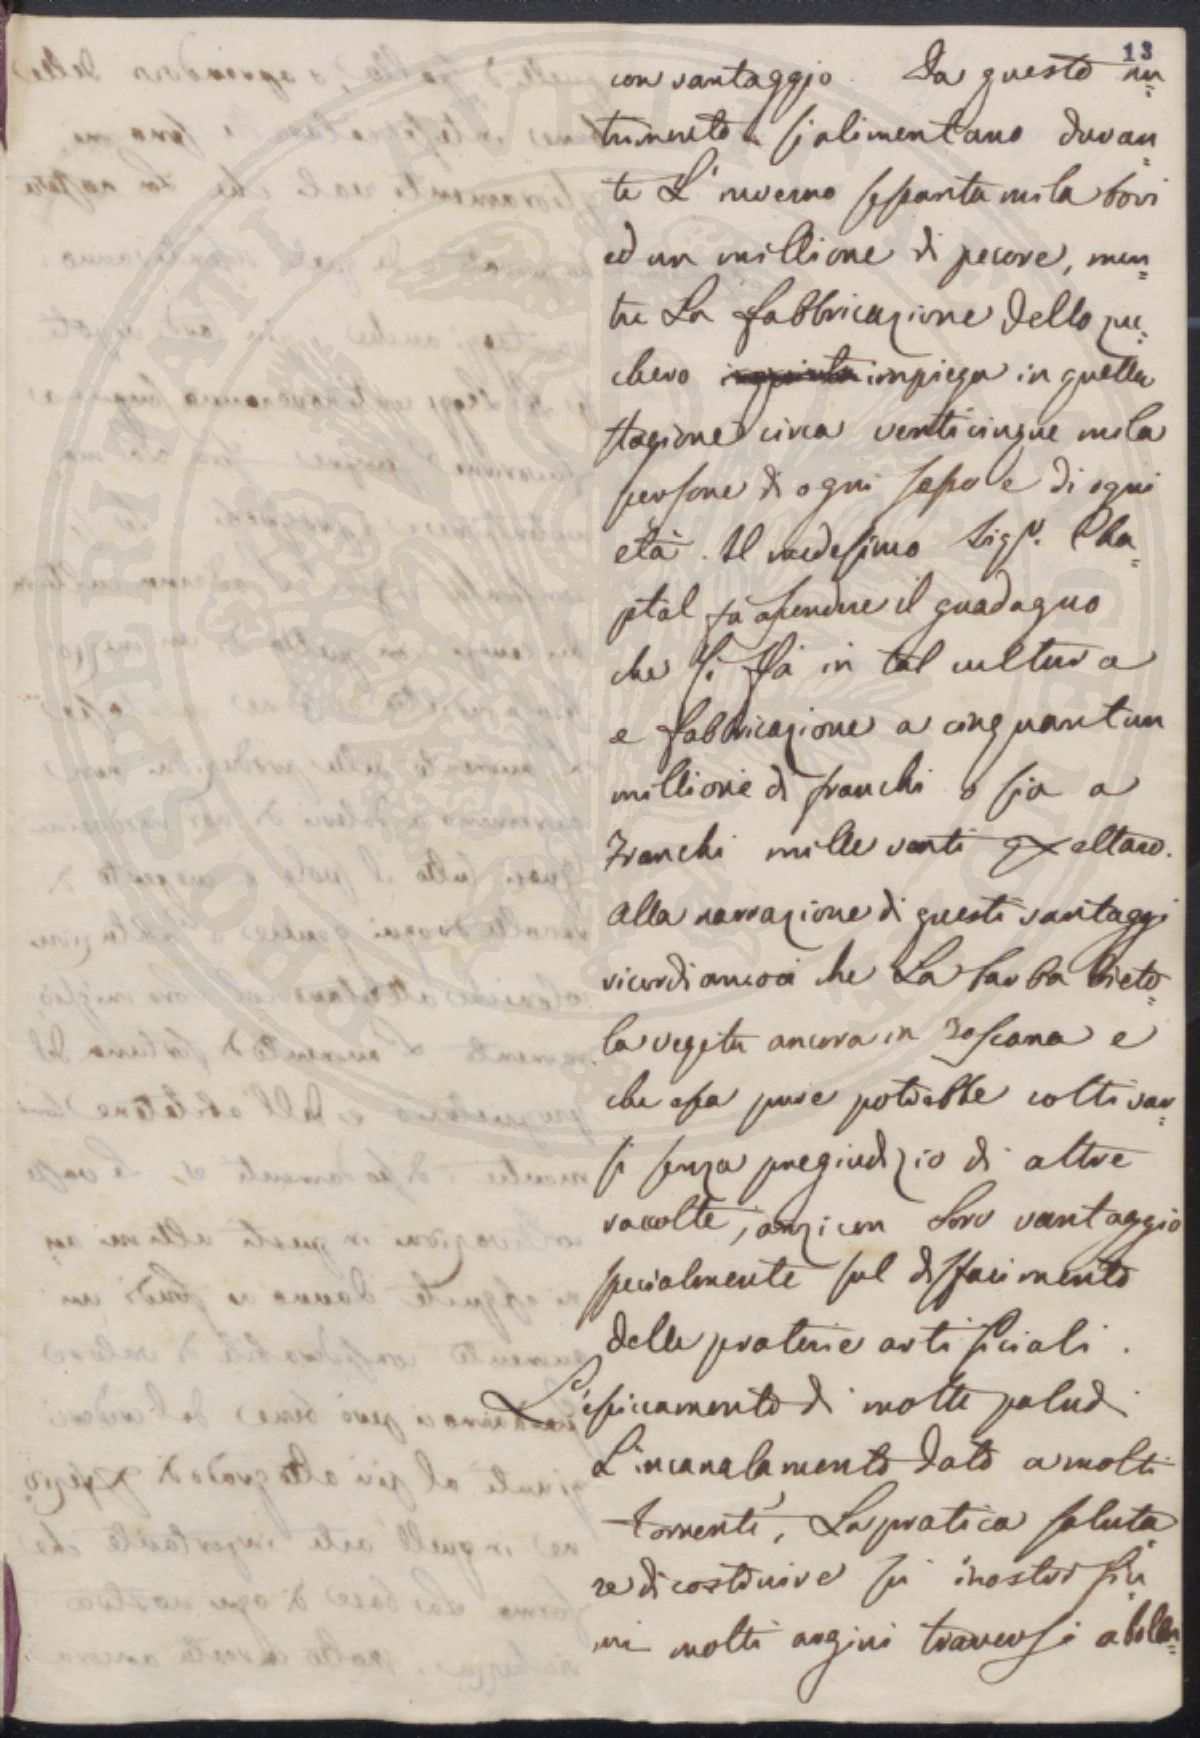 13
con vantaggio. Da questo nu=
trimento si alimentano duran=
te L'inverno sessanta mila bovi
ed un millione di pecore, men=
tre La fabbricazione dello zu=
chero impiega in quella
stagione circa venticinque mila
persone di ogni sesso e di ogni
età. Il medesimo Sigr. Cha=
ptal fà ascendere il guadagno
che si fà in tal cultura
e fabbricazione a cinquantun
millione di franchi o sia a
Franchi mille venti ettaro.
Alla narrazione di questi vantaggi
ricordiamoci che La barba bieto=
la vegeta ancora in Toscana e
che essa pure potrebbe coltivar=
si senza pregiudizio di altre
raccolte, anzi con Loro vantaggio
specialmente sul disfacimento
delle praterie artificiali.
L'essiccamento di molte paludi
L'incanalamento dato a molti
torrenti, La pratica saluta
re di costruire su i nostri fiu
mi molti argini traversi
PROSPERITATI AVGENDAE